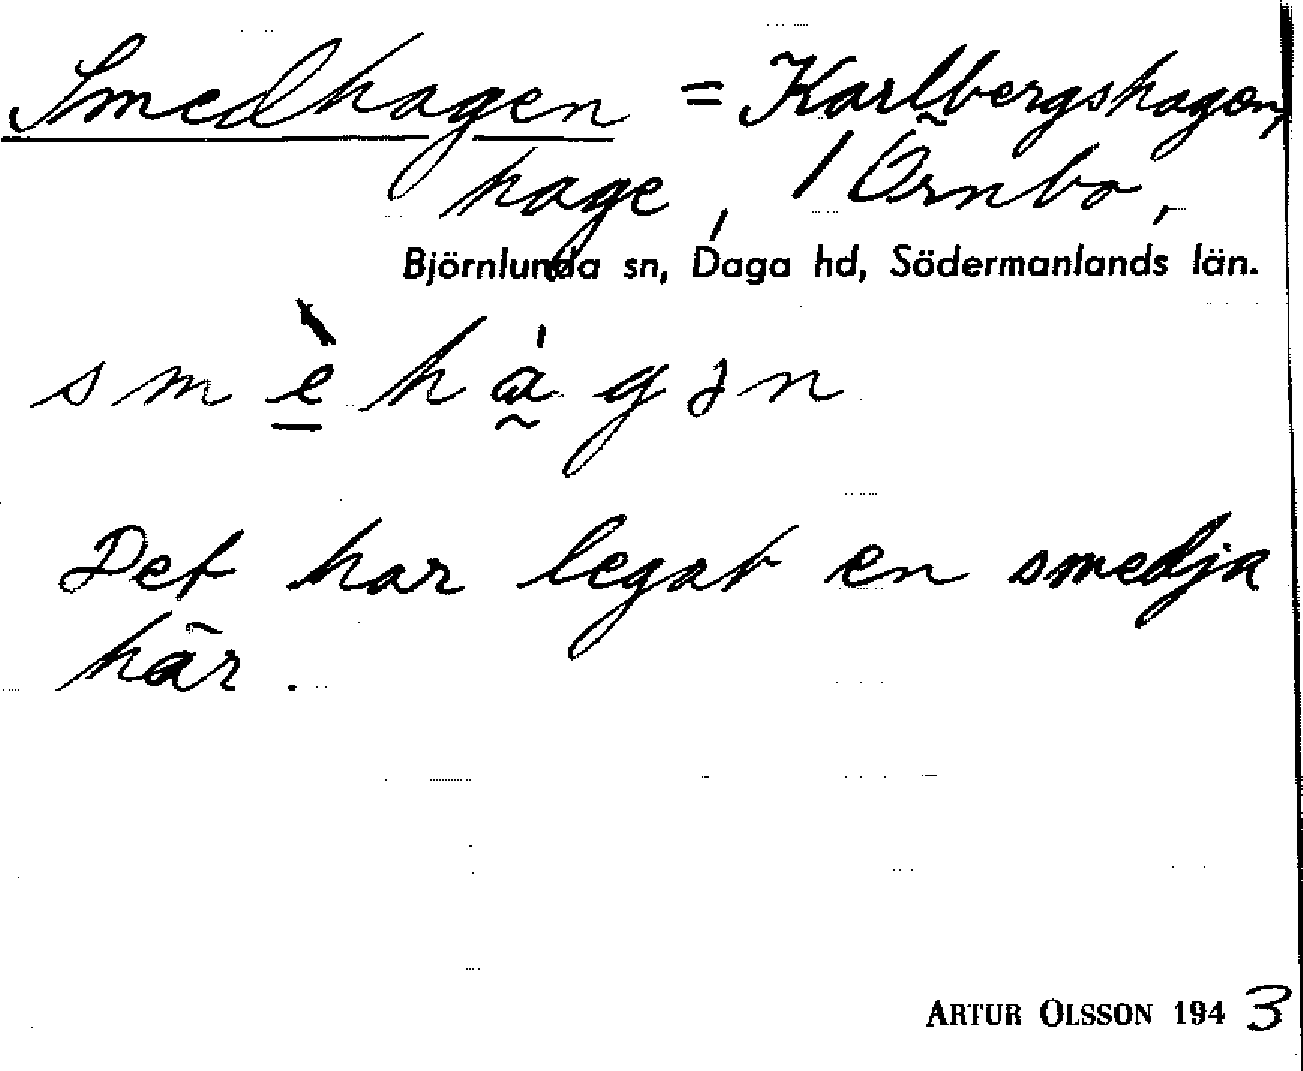 Smedhagen = Karlbergshagen,
hage, 1 Örnbo,
Björnlunda sn, Daga hd, Södermanlands län.
smèhágən
Det har legat en smedja
här.
ARTUR OLSSON 1943